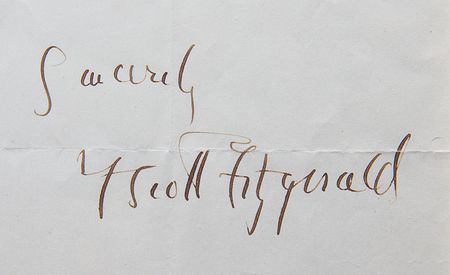 Sincerely
F Scott Fitzgerald